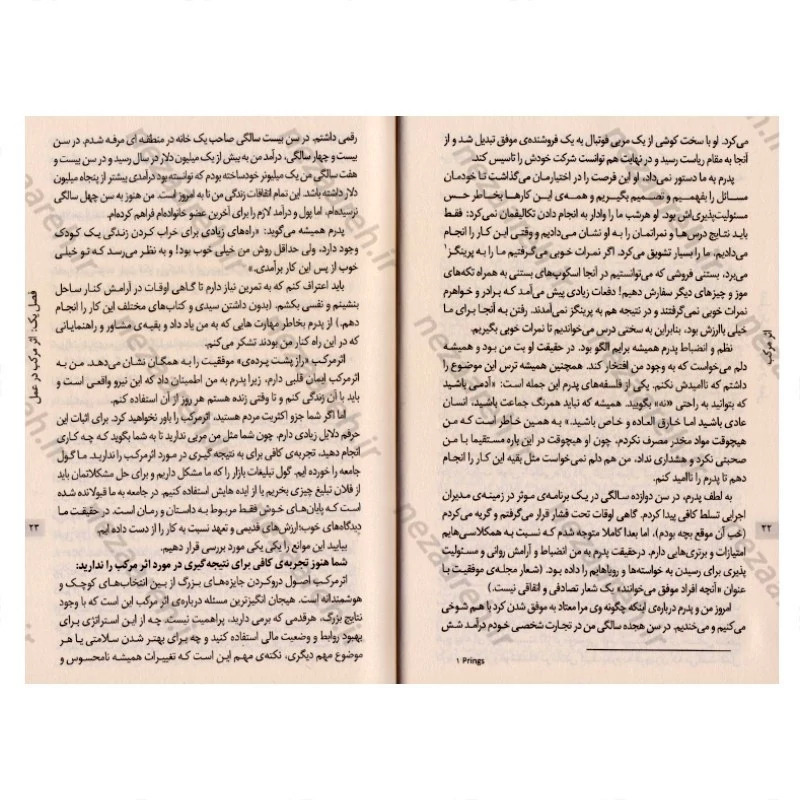 می‌کرد. او با سخت کوشی از یک مربی فوتبال به یک فروشنده‌ی موفق تبدیل شد و از
آنجا به مقام ریاست رسید و در نهایت هم توانست شرکت خودش را تاسیس کند.
پدرم به ما دستور نمی‌داد، او این فرصت را در اختیارمان می‌گذاشت تا خودمان
مسائل را بفهمیم و تصمیم بگیریم و همه‌ی این کارها بخاطر حس
مسئولیت‌پذیری‌اش بود. او هرشب ما را وادار به انجام دادن تکالیفمان نمی‌کرد: فقط
باید نتایج درس‌ها و نمراتمان را به او نشان می‌دادیم و وقتی این کار را انجام
می‌دادیم، ما را بسیار تشویق می‌کرد. اگر نمرات خوبی می‌گرفتیم ما را به پرینگز¹
می‌برد، بستنی فروشی که می‌توانستیم در آنجا اسکوپ‌های بستنی به همراه تکه‌های
موز و چیزهای دیگر سفارش دهیم! دفعات زیادی پیش می‌آمد که برادر و خواهرم
نمرات خوبی نمی‌گرفتند و در نتیجه هم به پرینگز نمی‌آمدند. رفتن به آنجا برای ما
خیلی باارزش بود، بنابراین به سختی درس می‌خواندیم تا نمرات خوبی بگیریم.
نظم و انضباط پدرم همیشه برایم الگو بود. در حقیقت او بت من بود و همیشه
دلم می‌خواست که به وجود من افتخار کند. همچنین همیشه ترس این موضوع را
داشتم که ناامیدش نکنم. یکی از فلسفه‌های پدرم این جمله است: «آدمی باشید
که بتوانید به راحتی «نه» بگویید. همیشه که نباید همرنگ جماعت باشید، انسان
عادی باشید اما خارق العاده و خاص باشید.» به همین خاطر است که من
هیچوقت مواد مخدر مصرف نکردم، چون او هیچوقت در این باره مستقیما با من
صحبتی نکرد و هشداری نداد، من هم دلم نمی‌خواست مثل بقیه این کار را انجام
دهم تا پدرم را ناامید کنم.
به لطف پدرم، در سن دوازده سالگی در یک برنامه‌ی موثر در زمینه‌ی مدیران
اجرایی تسلط کافی پیدا کردم. گاهی اوقات تحت فشار قرار می‌گرفتم و گریه می‌کردم
(خب آن موقع بچه بودم)، اما بعدا کاملا متوجه شدم که نسبت به همکلاسی‌هایم
امتیازات و برتری‌هایی دارم. درحقیقت پدرم به من انضباط و آرامش روانی و مسئولیت
پذیری برای رسیدن به خواسته‌ها و رویاهایم را داده بود. (شعار مجله‌ی موفقیت با
عنوان «آنچه افراد موفق می‌خوانند» یک شعار تصادفی و اتفاقی نیست.)
امروز من و پدرم درباره‌ی اینکه چگونه وی مرا معتاد به موفق شدن کرد با هم شوخی
می‌کنیم و می‌خندیم. در سن هجده سالگی من در تجارت شخصی خودم درآمد شش
1 Prings
اثر مرکب
۲۲
رقمی داشتم. در سن بیست سالگی صاحب یک خانه در منطقه ای مرفه شدم. در سن
بیست و چهار سالگی، درآمد من به بیش از یک میلیون دلار در سال رسید و در سن بیست و
هفت سالگی من یک میلیونر خودساخته بودم که توانسته بود درآمدی بیشتر از پنجاه میلیون
دلار داشته باشد. این تمام اتفاقات زندگی من تا به امروز است. من هنوز به سن چهل سالگی
نرسیده‌ام، اما پول و درآمد لازم را برای آخرین عضو خانواده‌ام فراهم کرده‌ام.
پدرم همیشه می‌گوید: «راه‌های زیادی برای خراب کردن زندگی یک کودک
وجود دارد، ولی حداقل روش من خیلی خوب بود! و به نظر می‌رسد که تو خیلی
خوب از پس این کار برآمدی.»
باید اعتراف کنم که به تمرین نیاز دارم تا گاهی اوقات در آرامش کنار ساحل
بنشینم و نفسی بکشم. (بدون داشتن سیدی و کتاب‌های مختلف این کار را انجام
دهم.) از پدرم بخاطر مهارت هایی که به من یاد داد و بقیه‌ی مشاور و راهنمایانی
که در این راه کنار من بودند تشکر می‌کنم.
اثرمرکب «راز پشت پرده‌ی» موفقیت را به همگان نشان می‌دهد. من به
اثرمرکب ایمان قلبی دارم، زیرا پدرم به من اطمینان داد که این نیرو واقعی است و
باید با آن زندگی کنم و تا وقتی زنده هستم هر روز از آن استفاده کنم.
اما اگر شما جزو اکثریت مردم هستید، اثرمرکب را باور نخواهید کرد. برای اثبات این
حرفم دلایل زیادی دارم. چون شما مثل من مربی ندارید تا به شما بگوید که چه کاری
انجام دهید، تجربه‌ی کافی برای به نتیجه گیری در مورد اثرمرکب را ندارید. ما گول
جامعه را خورده ایم. گول تبلیغات بازار را که ما مشکل داریم و برای حل مشکلاتمان باید
از فلان تبلیغ چیزی بخریم یا از ایده هایش استفاده کنیم. در جامعه به ما قبولانده شده
است که پایان‌های خوش فقط مربوط به داستان و رمان است. در حقیقت ما
دیدگاه‌های خوب؛ ارزش‌های قدیمی و تعهد نسبت به کار را از دست داده ایم.
بیایید این موانع را یکی یکی مورد بررسی قرار دهیم.
شما هنوز تجربه‌ی کافی برای نتیجه‌گیری در مورد اثر مرکب را ندارید:
اثرمرکب اصول دروکردن جایزه‌های بزرگ از بین انتخاب‌های کوچک و
هوشمندانه است. هیجان انگیزترین مسئله درباره‌ی اثر مرکب این است که با وجود
نتایج بزرگ، هرقدمی که برمی دارید، پراهمیت نیست. چه از این استراتژی برای
بهبود روابط و وضعیت مالی استفاده کنید و چه برای بهتر شدن سلامتی یا هر
موضوع مهم دیگری، نکته‌ی مهم این است که تغییرات همیشه نامحسوس و
فصل یک: اثر مرکب در عمل
۲۳